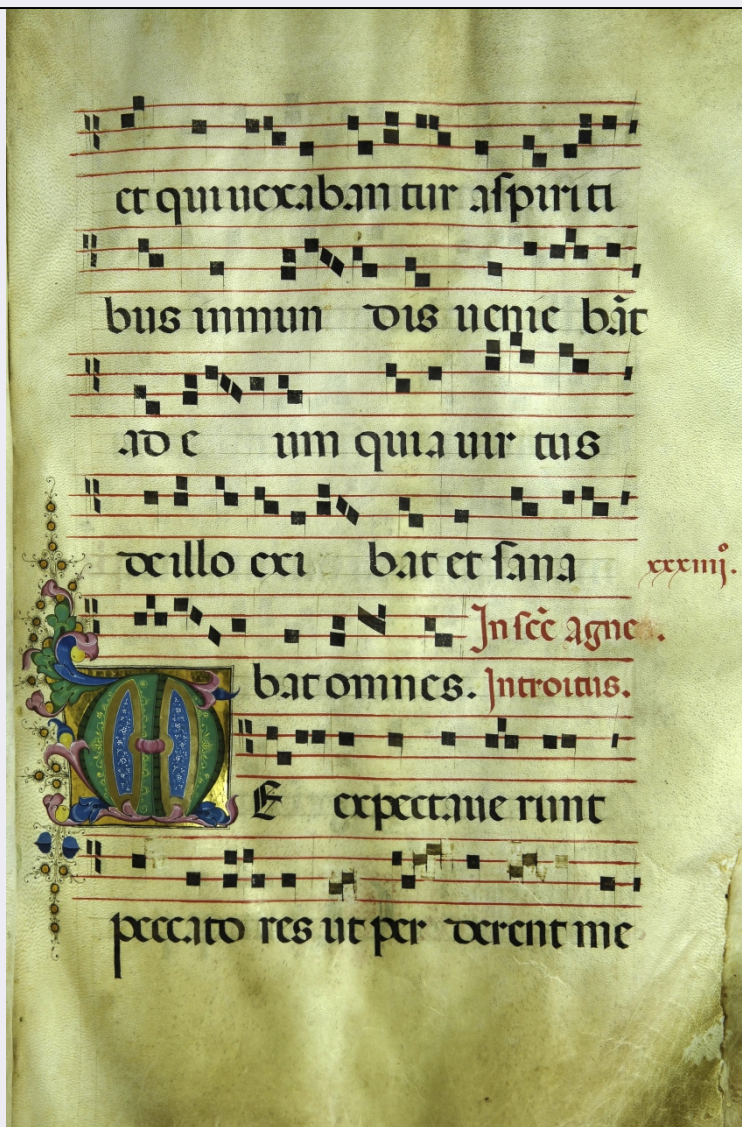 et qui uexaban tur aspiriti
bus inmun dis uenie bāt
ad e um quia uir tus
de illo exi bat et sana
xxxiiij.º
In scē agne .
bat omnes. Introitus.
ME expectaue runt
peccato res ut per derent me